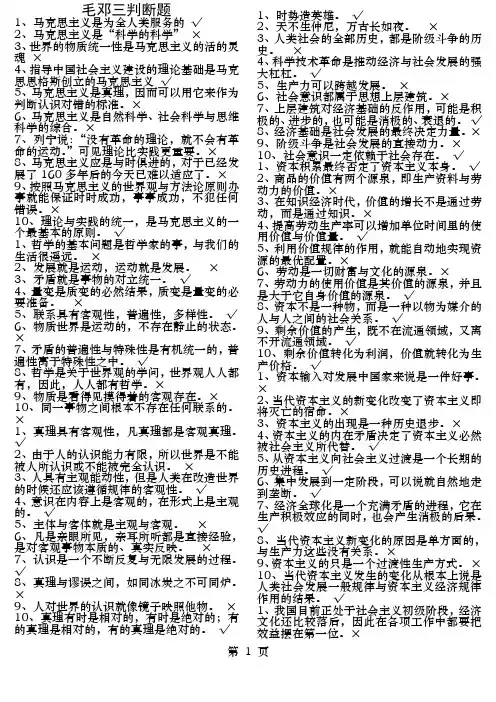 毛邓三判断题
1、马克思主义是为全人类服务的 √
2、马克思主义是“科学的科学” ×
3、世界的物质统一性是马克思主义的活的灵
魂 ×
4、指导中国社会主义建设的理论基础是马克
思恩格斯创立的马克思主义 √
5、马克思主义是真理，因而可以用它来作为
判断认识对错的标准。×
6、马克思主义是自然科学、社会科学与思维
科学的综合。×
7、列宁说：“没有革命的理论，就不会有革
命的运动。”可见理论比实践更重要。×
8、马克思主义应是与时俱进的，对于已经发
展了 160 多年后的今天已难以适应了。×
9、按照马克思主义的世界观与方法论原则办
事就能保证时时成功，事事成功，不犯任何
错误。×
10、理论与实践的统一，是马克思主义的一
个最基本的原则。 √
1、哲学的基本问题是哲学家的事，与我们的
生活很遥远。 ×
2、发展就是运动，运动就是发展。 ×
3、矛盾就是事物的对立统一。 √
4、量变是质变的必然结果，质变是量变的必
要准备。 ×
5、联系具有客观性，普遍性，多样性。 √
6、物质世界是运动的，不存在静止的状态。
×
7、矛盾的普遍性与特殊性是有机统一的，普
遍性寓于特殊性之中。 √
8、哲学是关于世界观的学问，世界观人人都
有，因此，人人都有哲学。×
9、物质是看得见摸得着的客观存在。×
10、同一事物之间根本不存在任何联系的。
×
1、真理具有客观性，凡真理都是客观真理。
√
2、由于人的认识能力有限，所以世界是不能
被人所认识或不能被完全认识。 ×
3、人具有主观能动性，但是人类在改造世界
的时候还应该遵循规律的客观性。 √
4、意识在内容上是客观的，在形式上是主观
的。 √
5、主体与客体就是主观与客观。 ×
6、凡是亲眼所见，亲耳所听都是直接经验，
是对客观事物本质的、真实反映。 ×
7、认识是一个不断反复与无限发展的过程。
√
8、真理与谬误之间，如同冰炭之不可同炉。
×
9、人对世界的认识就像镜子映照他物。 ×
10、真理有时是相对的，有时是绝对的；有
的真理是相对的，有的真理是绝对的。 √
1、时势造英雄。 √
2、天不生仲尼，万古长如夜。 ×
3、人类社会的全部历史，都是阶级斗争的历
史。 ×
4、科学技术革命是推动经济与社会发展的强
大杠杠。 √
5、生产力可以跨越发展。 ×
6、社会意识都属于思想上层建筑。×
7、上层建筑对经济基础的反作用，可能是积
极的、进步的，也可能是消极的、衰退的。 √
8、经济基础是社会发展的最终决定力量。×
9、阶级斗争是社会发展的直接动力。 ×
10、社会意识一定依赖于社会存在。 √
1、资本积累最终否定了资本主义本身。 √
2、商品的价值有两个源泉，即生产资料与劳
动力的价值。×
3、在知识经济时代，价值的增长不是通过劳
动，而是通过知识。×
4、提高劳动生产率可以增加单位时间里的使
用价值与价值量。 √
5、利用价值规律的作用，就能自动地实现资
源的最优配置。×
6、劳动是一切财富与文化的源泉。×
7、劳动力的使用价值是其价值的源泉，并且
是大于它自身价值的源泉。 √
8、资本不是一种物，而是一种以物为媒介的
人与人之间的社会关系。 √
9、剩余价值的产生，既不在流通领域，又离
不开流通领域。 √
10、剩余价值转化为利润，价值就转化为生
产价格。 √
1、资本输入对发展中国家来说是一件好事。
×
2、当代资本主义的新变化改变了资本主义即
将灭亡的宿命。×
3、资本主义的出现是一种历史退步。×
4、资本主义的内在矛盾决定了资本主义必然
被社会主义所代替。 √
5、从资本主义向社会主义过渡是一个长期的
历史进程。 √
6、集中发展到一定阶段，可以说就自然地走
到垄断。 √
7、经济全球化是一个充满矛盾的进程，它在
生产积极效应的同时，也会产生消极的后果。
√
8、当代资本主义新变化的原因是单方面的，
与生产力这些没有关系。×
9、资本主义的只是一个过渡性生产方式。×
10、当代资本主义发生的变化从根本上说是
人类社会发展一般规律与资本主义经济规律
作用的结果。 √
1、我国目前正处于社会主义初级阶段，经济
文化还比较落后，因此在各项工作中都要把
效益摆在第一位。×
第 1 页